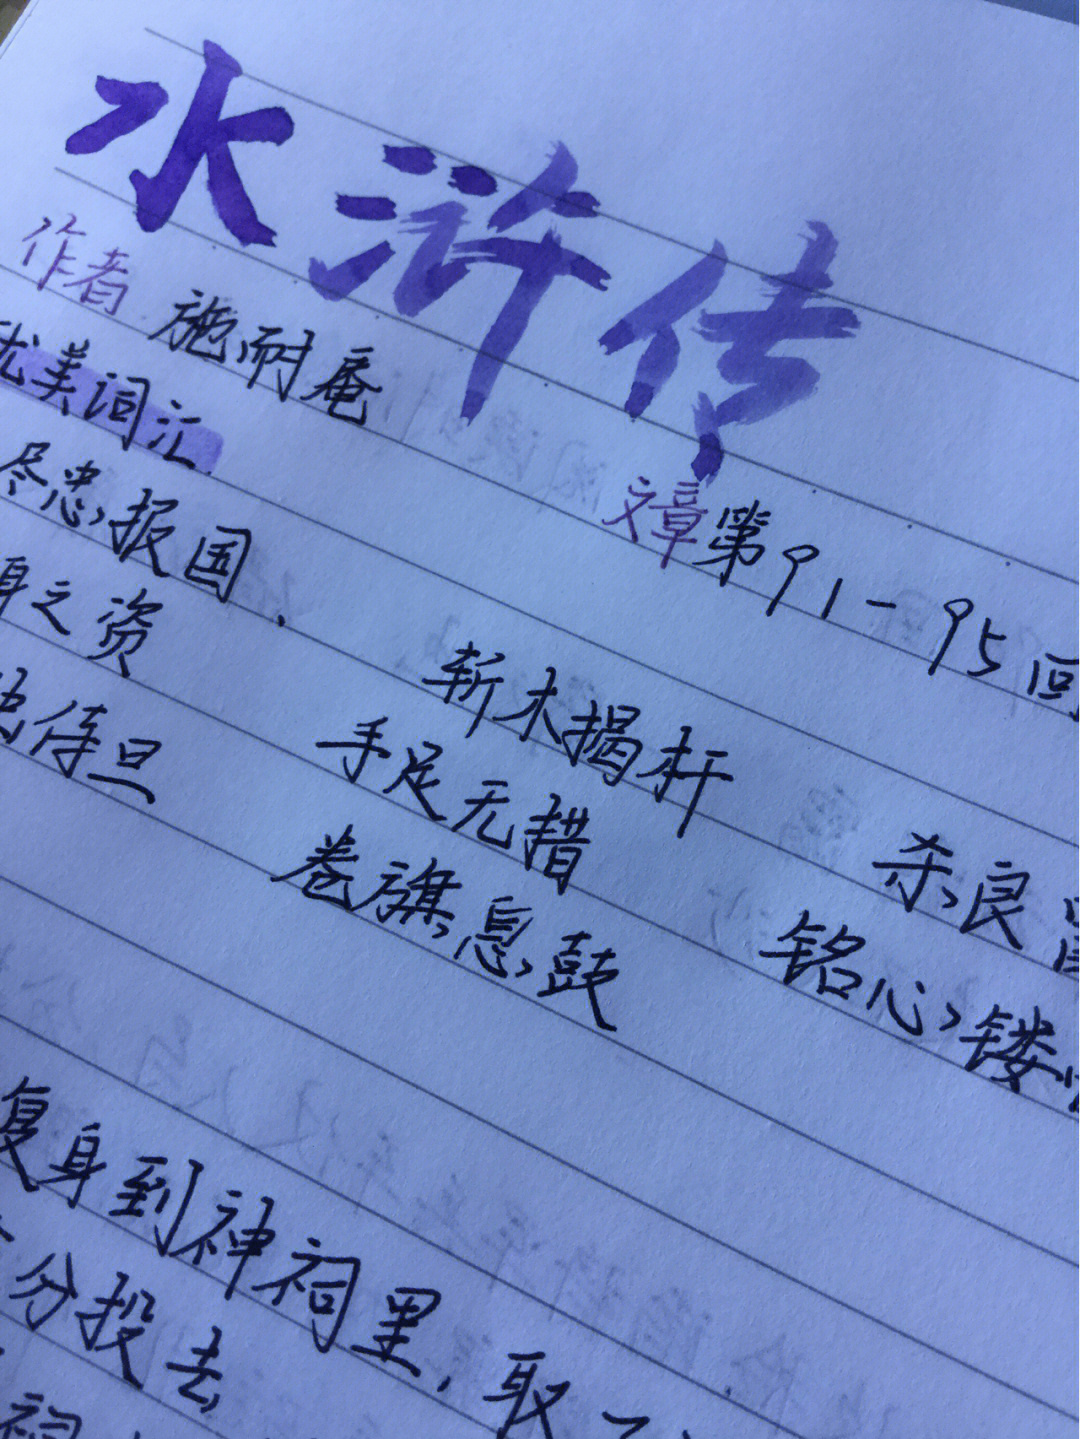 水浒传
作者 施耐庵
文章第91-95回
优美词汇
尽忠报国、 斩木揭杆 杀良冒
身之资 手足无措 铭心镂
待旦 卷旗息鼓
复身到神祠里,取一
分投去
祠